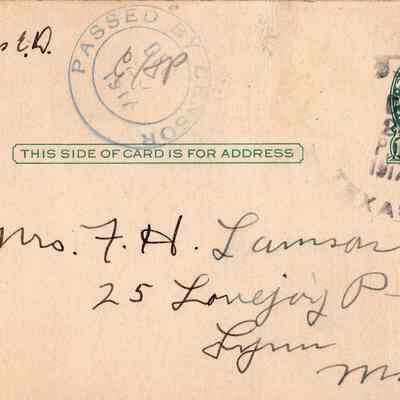 PASSED BY CENSOR
1917
TEXAS
THIS SIDE OF CARD IS FOR ADDRESS
Mrs. F. H. Lamson
25 Lovejoy P
Lynn
M